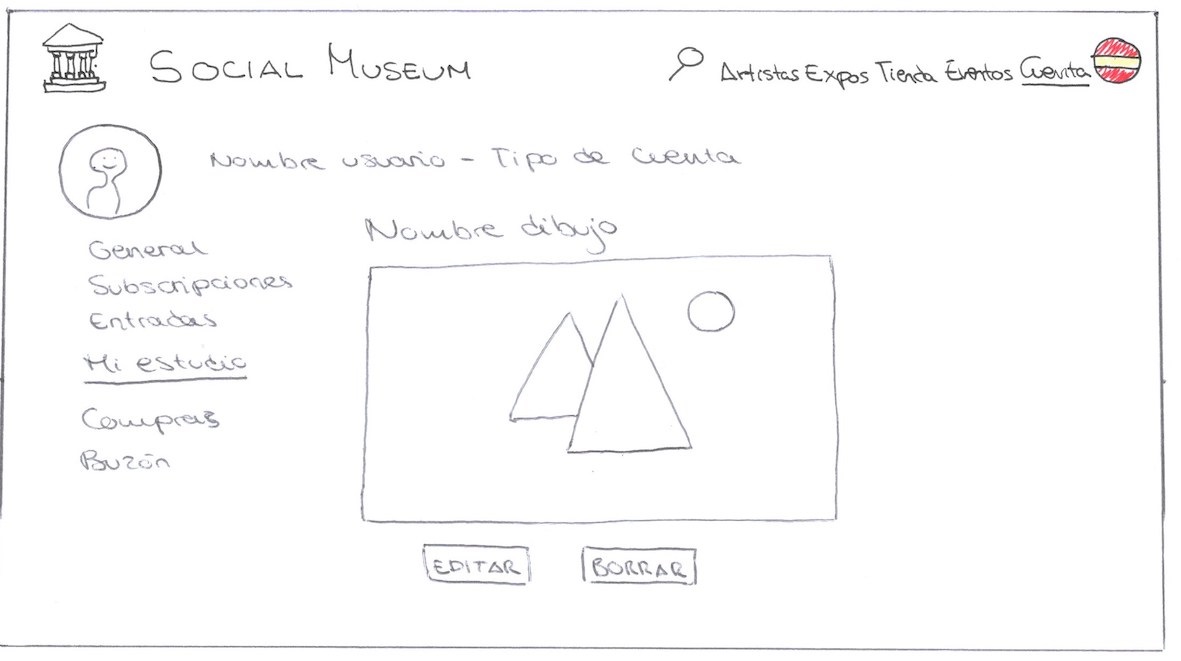 SOCIAL MUSEUM
Artistas Expos Tienda Eventos Cuenta
Nombre usuario - Tipo de cuenta
Nombre dibujo
General
Subscripciones
Entradas
Mi estudio
Compras
Buzón
EDITAR BORRAR